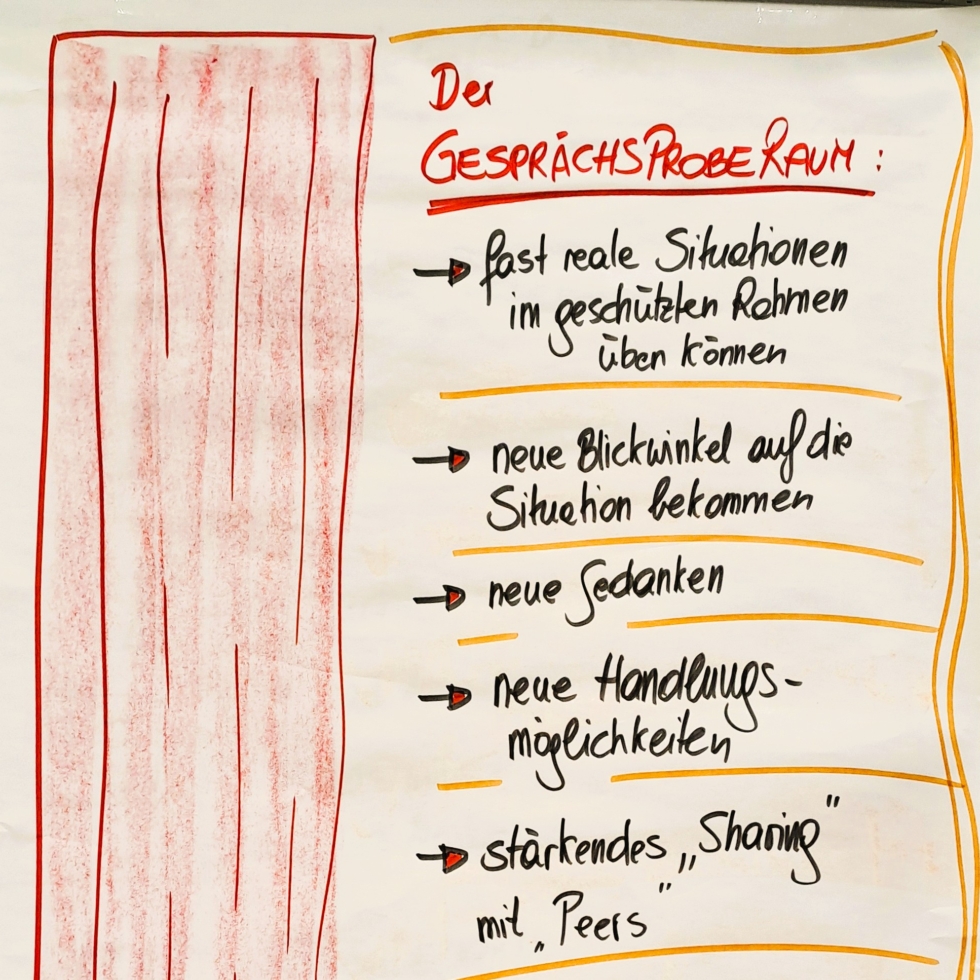 Der
GESPRÄCHSPROBERAUM:
→ fast reale Situationen
im geschützten Rahmen
üben können
→ neue Blickwinkel auf die
Situation bekommen
→ neue Gedanken
→ neue Handlungs-
möglichkeiten
→ stärkendes „Sharing"
mit „Peers"